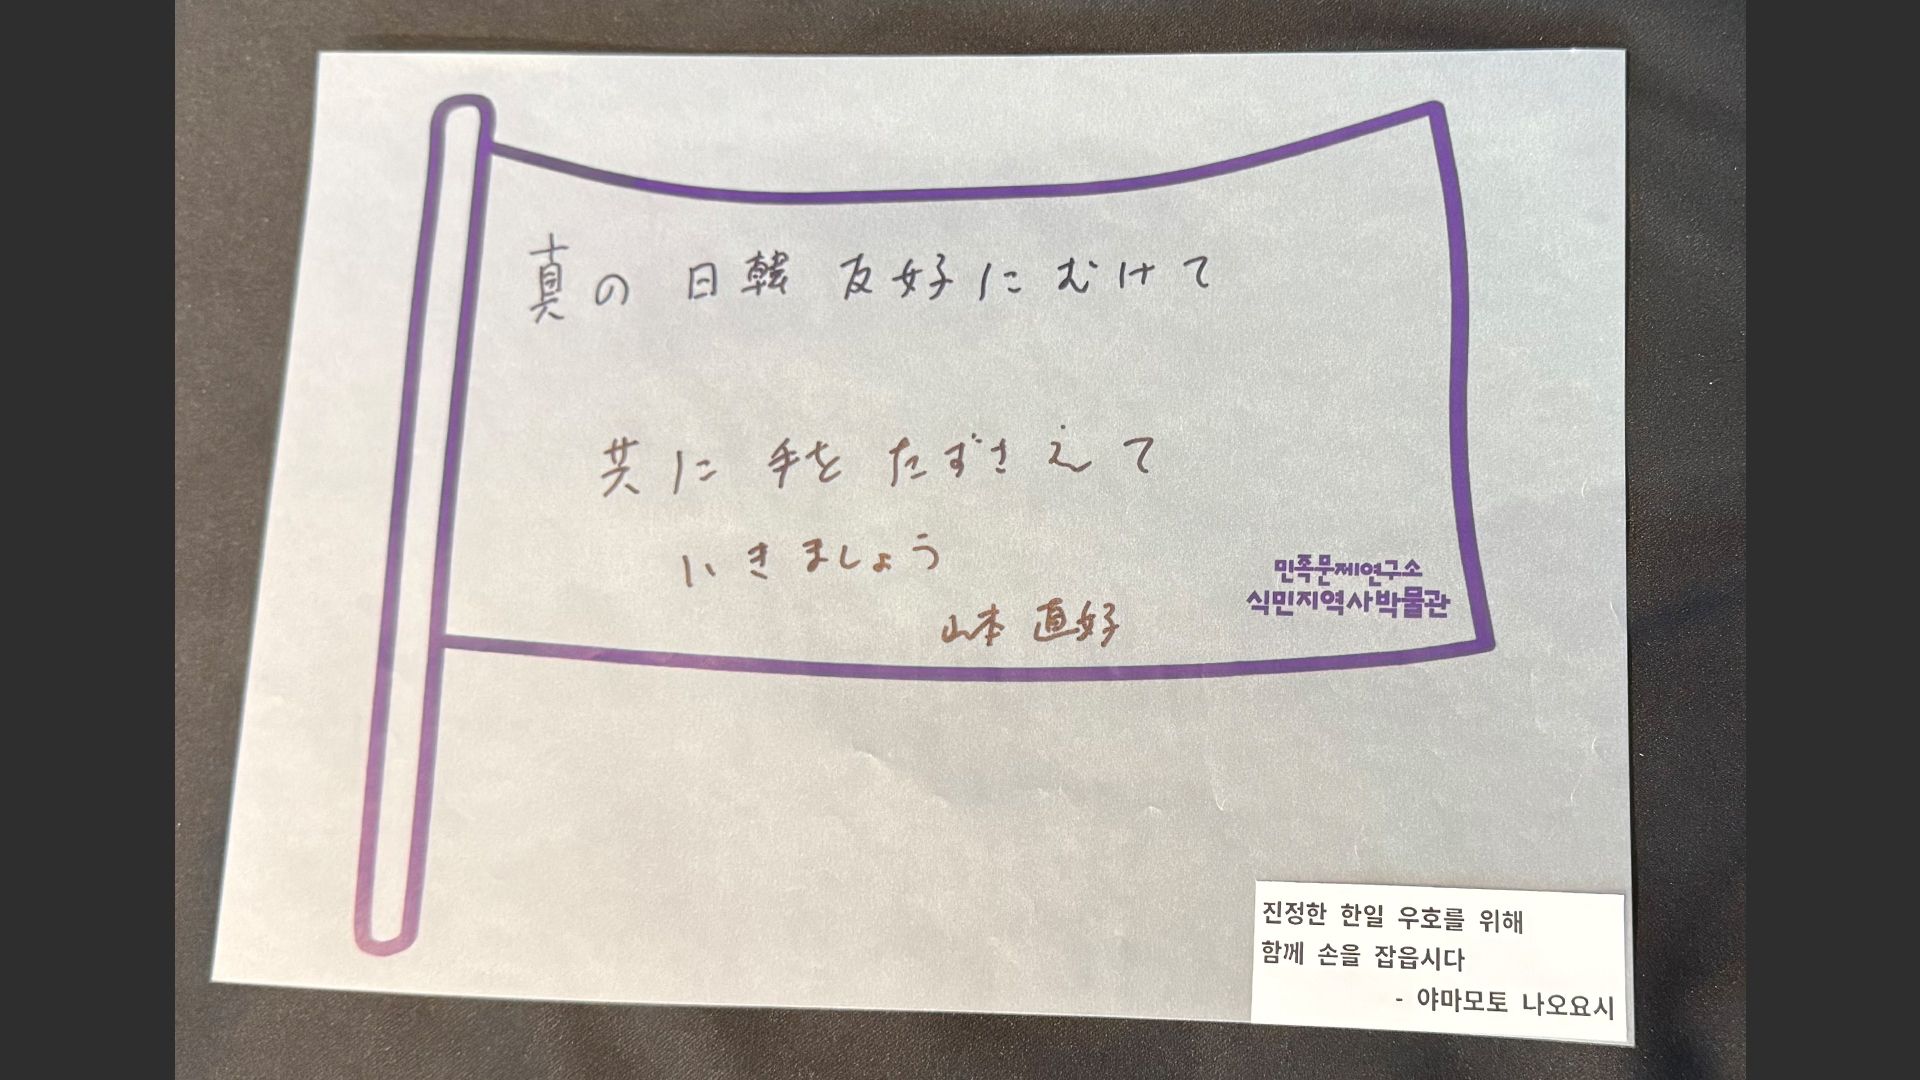 真の 日韓 友好に むけて
共に 手を たずさえて
いきましょう
山本 直好
민족문제연구소
식민지역사박물관
진정한 한일 우호를 위해
함께 손을 잡읍시다
- 야마모토 나오요시